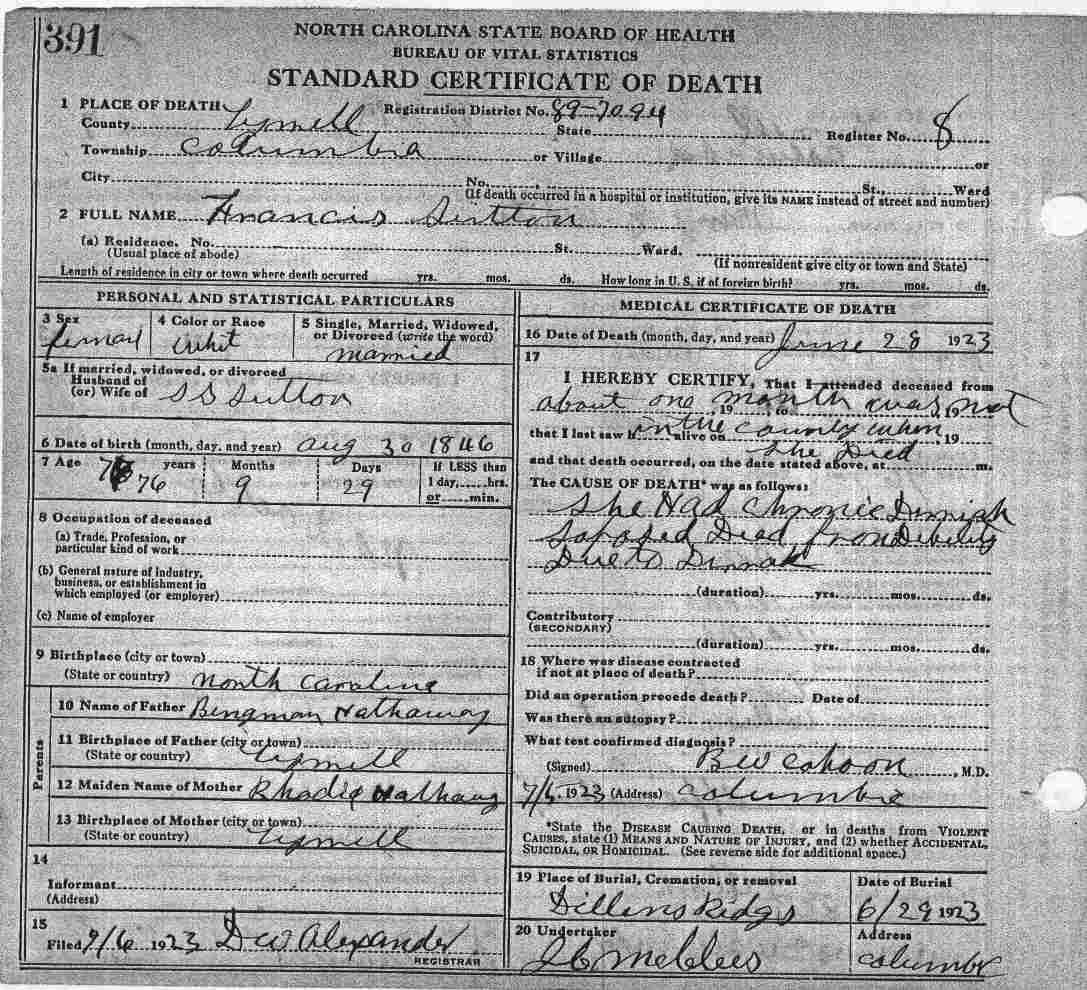 391
NORTH CAROLINA STATE BOARD OF HEALTH
BUREAU OF VITAL STATISTICS
STANDARD CERTIFICATE OF DEATH
1 PLACE OF DEATH Registration District No. 89-7094
County Tyrrell State Register No. 8
Township Columbia or Village or
City No. , St., Ward
(If death occurred in a hospital or institution, give its NAME instead of street and number)
2 FULL NAME Francis Sutton
(a) Residence. No. St. Ward.
(Usual place of abode) (If nonresident give city or town and State)
Length of residence in city or town where death occurred yrs. mos. ds. How long in U. S. if of foreign birth? yrs. mos. ds.
PERSONAL AND STATISTICAL PARTICULARS
3 Sex 4 Color or Race 5 Single, Married, Widowed, or Divorced (write the word)
femail whit married
5a If married, widowed, or divorced
Husband of
(or) Wife of S S Sutton
6 Date of birth (month, day, and year) Aug 30 1846
7 Age 76 years Months 9 Days 29 If LESS than 1 day, hrs. or min.
8 Occupation of deceased
(a) Trade, Profession, or
particular kind of work
(b) General nature of Industry,
business, or establishment in
which employed (or employer)
(c) Name of employer
9 Birthplace (city or town)
(State or country) North Caroline
Parents
10 Name of Father Bengman Hathaway
11 Birthplace of Father (city or town)
(State or country) Tyrrell
12 Maiden Name of Mother Hathaway
13 Birthplace of Mother (city or town)
(State or country) Tyrrell
14
Informant
(Address)
15
Filed 9/6 1923 D W Alexander
REGISTRAR
MEDICAL CERTIFICATE OF DEATH
16 Date of Death (month, day, and year) June 28 1923
17
I HEREBY CERTIFY, That I attended deceased from
about one month was not
, 19 to , 19
that I last saw h in the county when alive on , 19
she Died
and that death occurred, on the date stated above, at m.
The CAUSE OF DEATH* was as follows:
She Had Chronic
Died from Debility
Due to
(duration) yrs. mos. ds.
Contributory
(SECONDARY)
(duration) yrs. mos. ds.
18 Where was disease contracted
if not at place of death?
Did an operation precede death? Date of
Was there an autopsy?
What test confirmed diagnosis?
(Signed) B W Cohoon, M.D.
7/6 1923 (Address) Columbia
*State the DISEASE CAUSING DEATH, or in deaths from VIOLENT
CAUSES, state (1) MEANS AND NATURE OF INJURY, and (2) whether ACCIDENTAL,
SUICIDAL, OR HOMICIDAL. (See reverse side for additional space.)
19 Place of Burial, Cremation, or removal Date of Burial
Dillens Ridge 6/29 1923
20 Undertaker Address
J C McClees Columbia